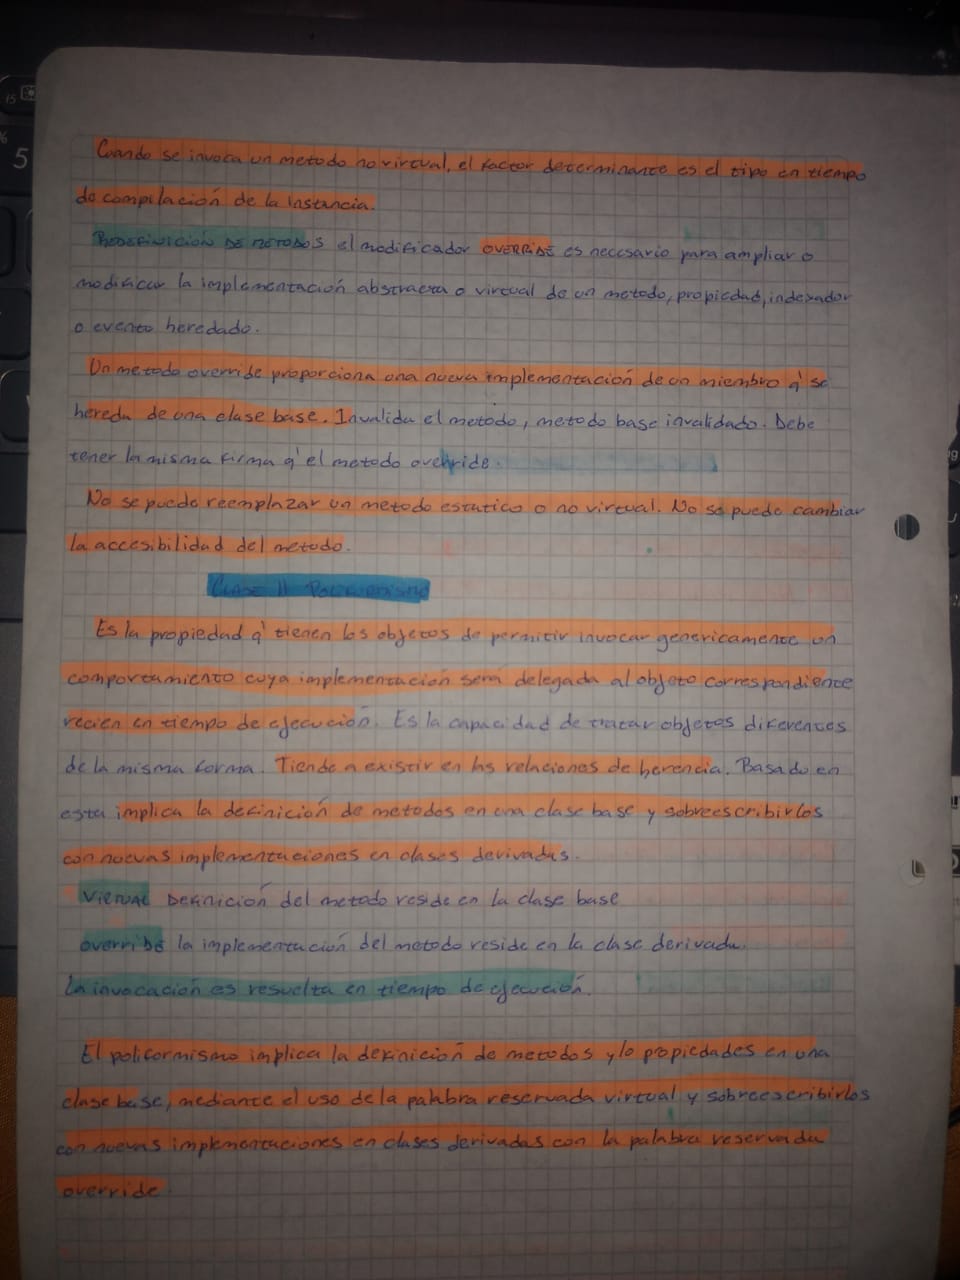 Cuando se invoca un metodo no virtual, el factor determinante es el tipo en tiempo
de compilación de la instancia.
REDEFINICIÓN DE METODOS el modificador OVERRIDE es necesario para ampliar o
modificar la implementación abstracta o virtual de un metodo, propiedad, indexador
o evento heredado.
Un metodo override proporciona una nueva implementación de un miembro q' se
hereda de una clase base. Invalida el metodo, metodo base invalidado. Debe
tener la misma firma q' el metodo override.
No se puede reemplazar un metodo estatico o no virtual. No se puede cambiar
la accesibilidad del metodo.
CLASE 11 POLIFORMISMO
Es la propiedad q' tienen los objetos de permitir invocar genericamente un
comportamiento cuya implementación será delegada al objeto correspondiente
recien en tiempo de ejecución. Es la capacidad de tratar objetos diferentes
de la misma forma. Tiende a existir en las relaciones de herencia. Basado en
esta implica la definición de metodos en una clase base y sobreescribirlos
con nuevas implementaciones en clases derivadas.
VIRTUAL DEFINICIÓN del metodo reside en la clase base
override la implementación del metodo reside en la clase derivada.
La invocación es resuelta en tiempo de ejecución.
El poliformismo implica la definición de metodos y/o propiedades en una
clase base, mediante el uso de la palabra reservada virtual y sobreescribirlos
con nuevas implementaciones en clases derivadas con la palabra reservada
override.
5